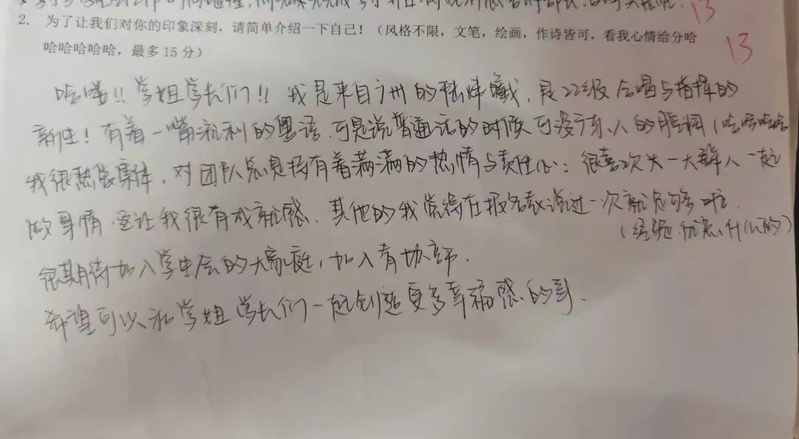 13
2. 为了让我们对你的印象深刻，请简单介绍一下自己！（风格不限，文笔，绘画，作诗皆可，看我心情给分哈
哈哈哈哈哈，最多 15 分）
13
哈喽!! 学姐学长们!! 我是来自广州的 是22级合唱与指挥的
新生! 有着一嘴流利的粤语，可是说普通话的时候可没广东人的 （哈哈哈哈
我很热爱集体，对团队总是抱有着满满的热情与责任心：很喜欢大一大群人一起
做事情，这让我很有成就感，其他的我觉得在报名表说过一次就足够啦
（经验优点什么的）
很期待加入学生会的大家庭，加入青协部.
希望可以和学姐学长们一起创造更多幸福感的事.